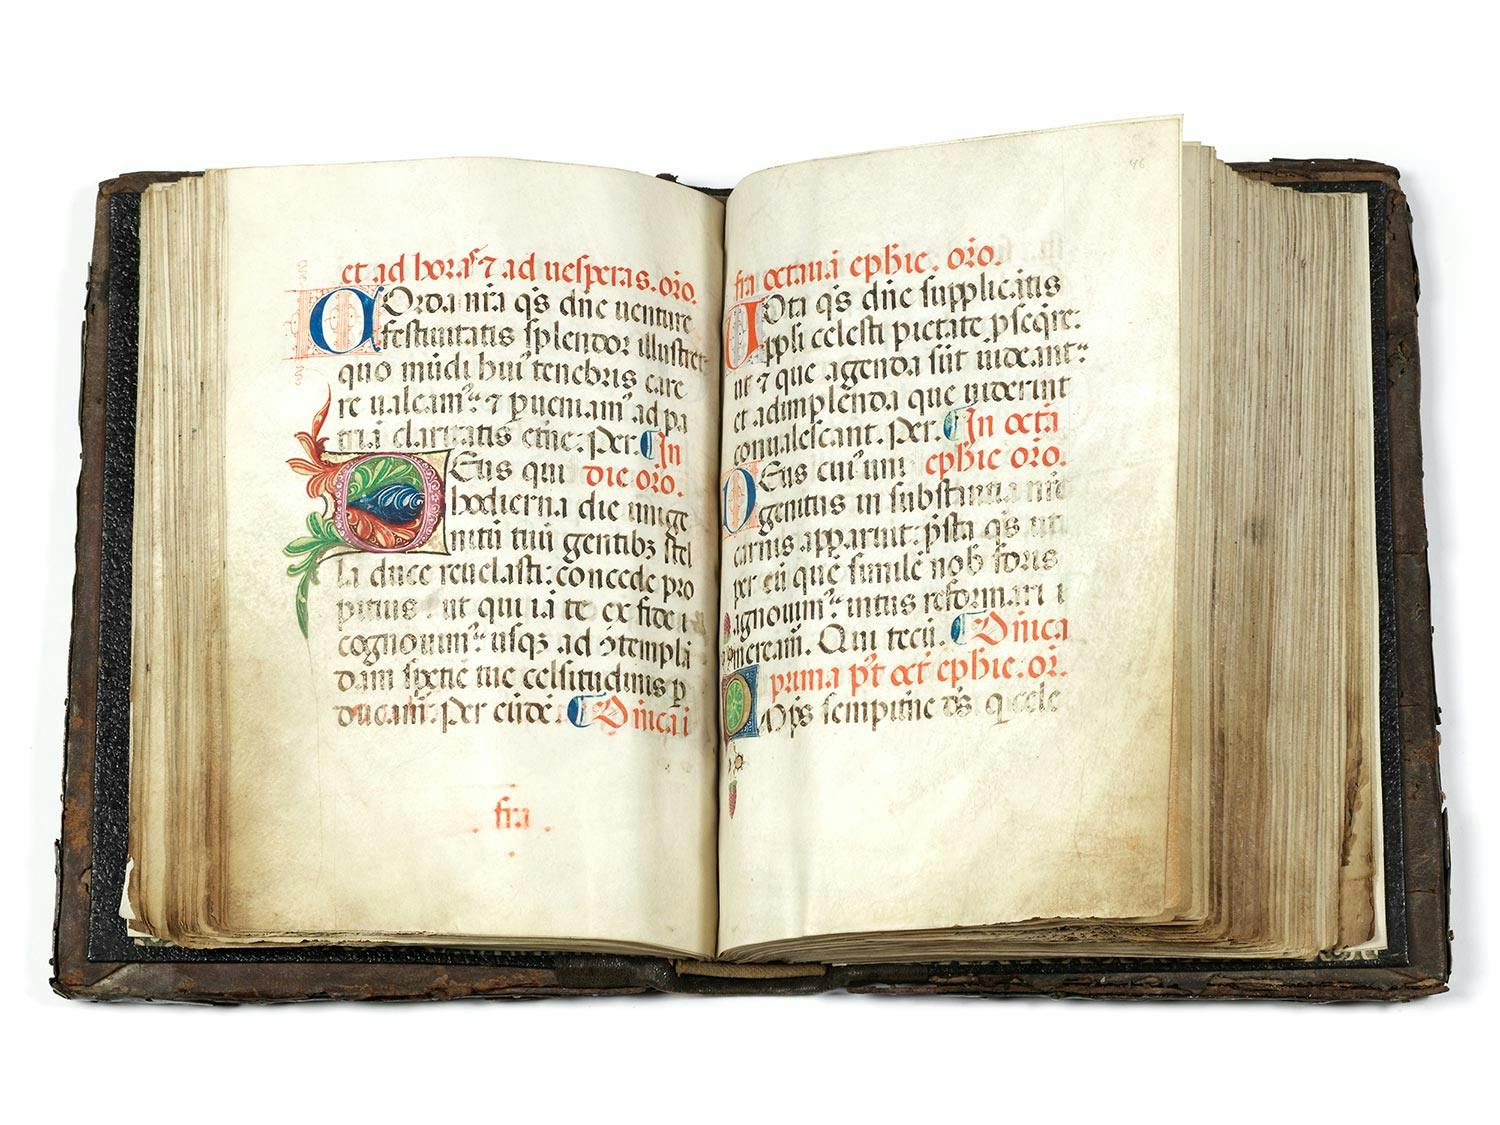 et ad hora⁊ ⁊ ad uesperas. oro.
COrda nra qs dne uenture
festiuitatis splendor illustret
quo mudi hui' tenebris care
re ualeam'. ⁊ pueniam' ad pa
tria claritatis etne: Per. In
DEus qui die oro.
hodierna die unige
nitu tuu gentibȝ stel
la duce reuelasti: concede pro
pitius: ut qui ia te ex fide
cognouim': usqȝ ad ɔtempla
dam spetie tue celsitudinis p
ducam: Per eude. Dnica i
fra
46
fra octaua ephie. oro.
UOta qs dne supplicatis
ppli celesti pietate pseqre:
ut ⁊ que agenda sut uideant:
et adimplenda que uiderint
conualescant. Per. In octa
DEus cui' uni ephie oro.
genitus in substantia nre
carnis apparuit: psta qs ut
per eu que simile nob foris
agnouim': intus reformari
meream. Qui tecu. Dnica
prima pt oct ephie. or.
Ops sempitne ds. q cele